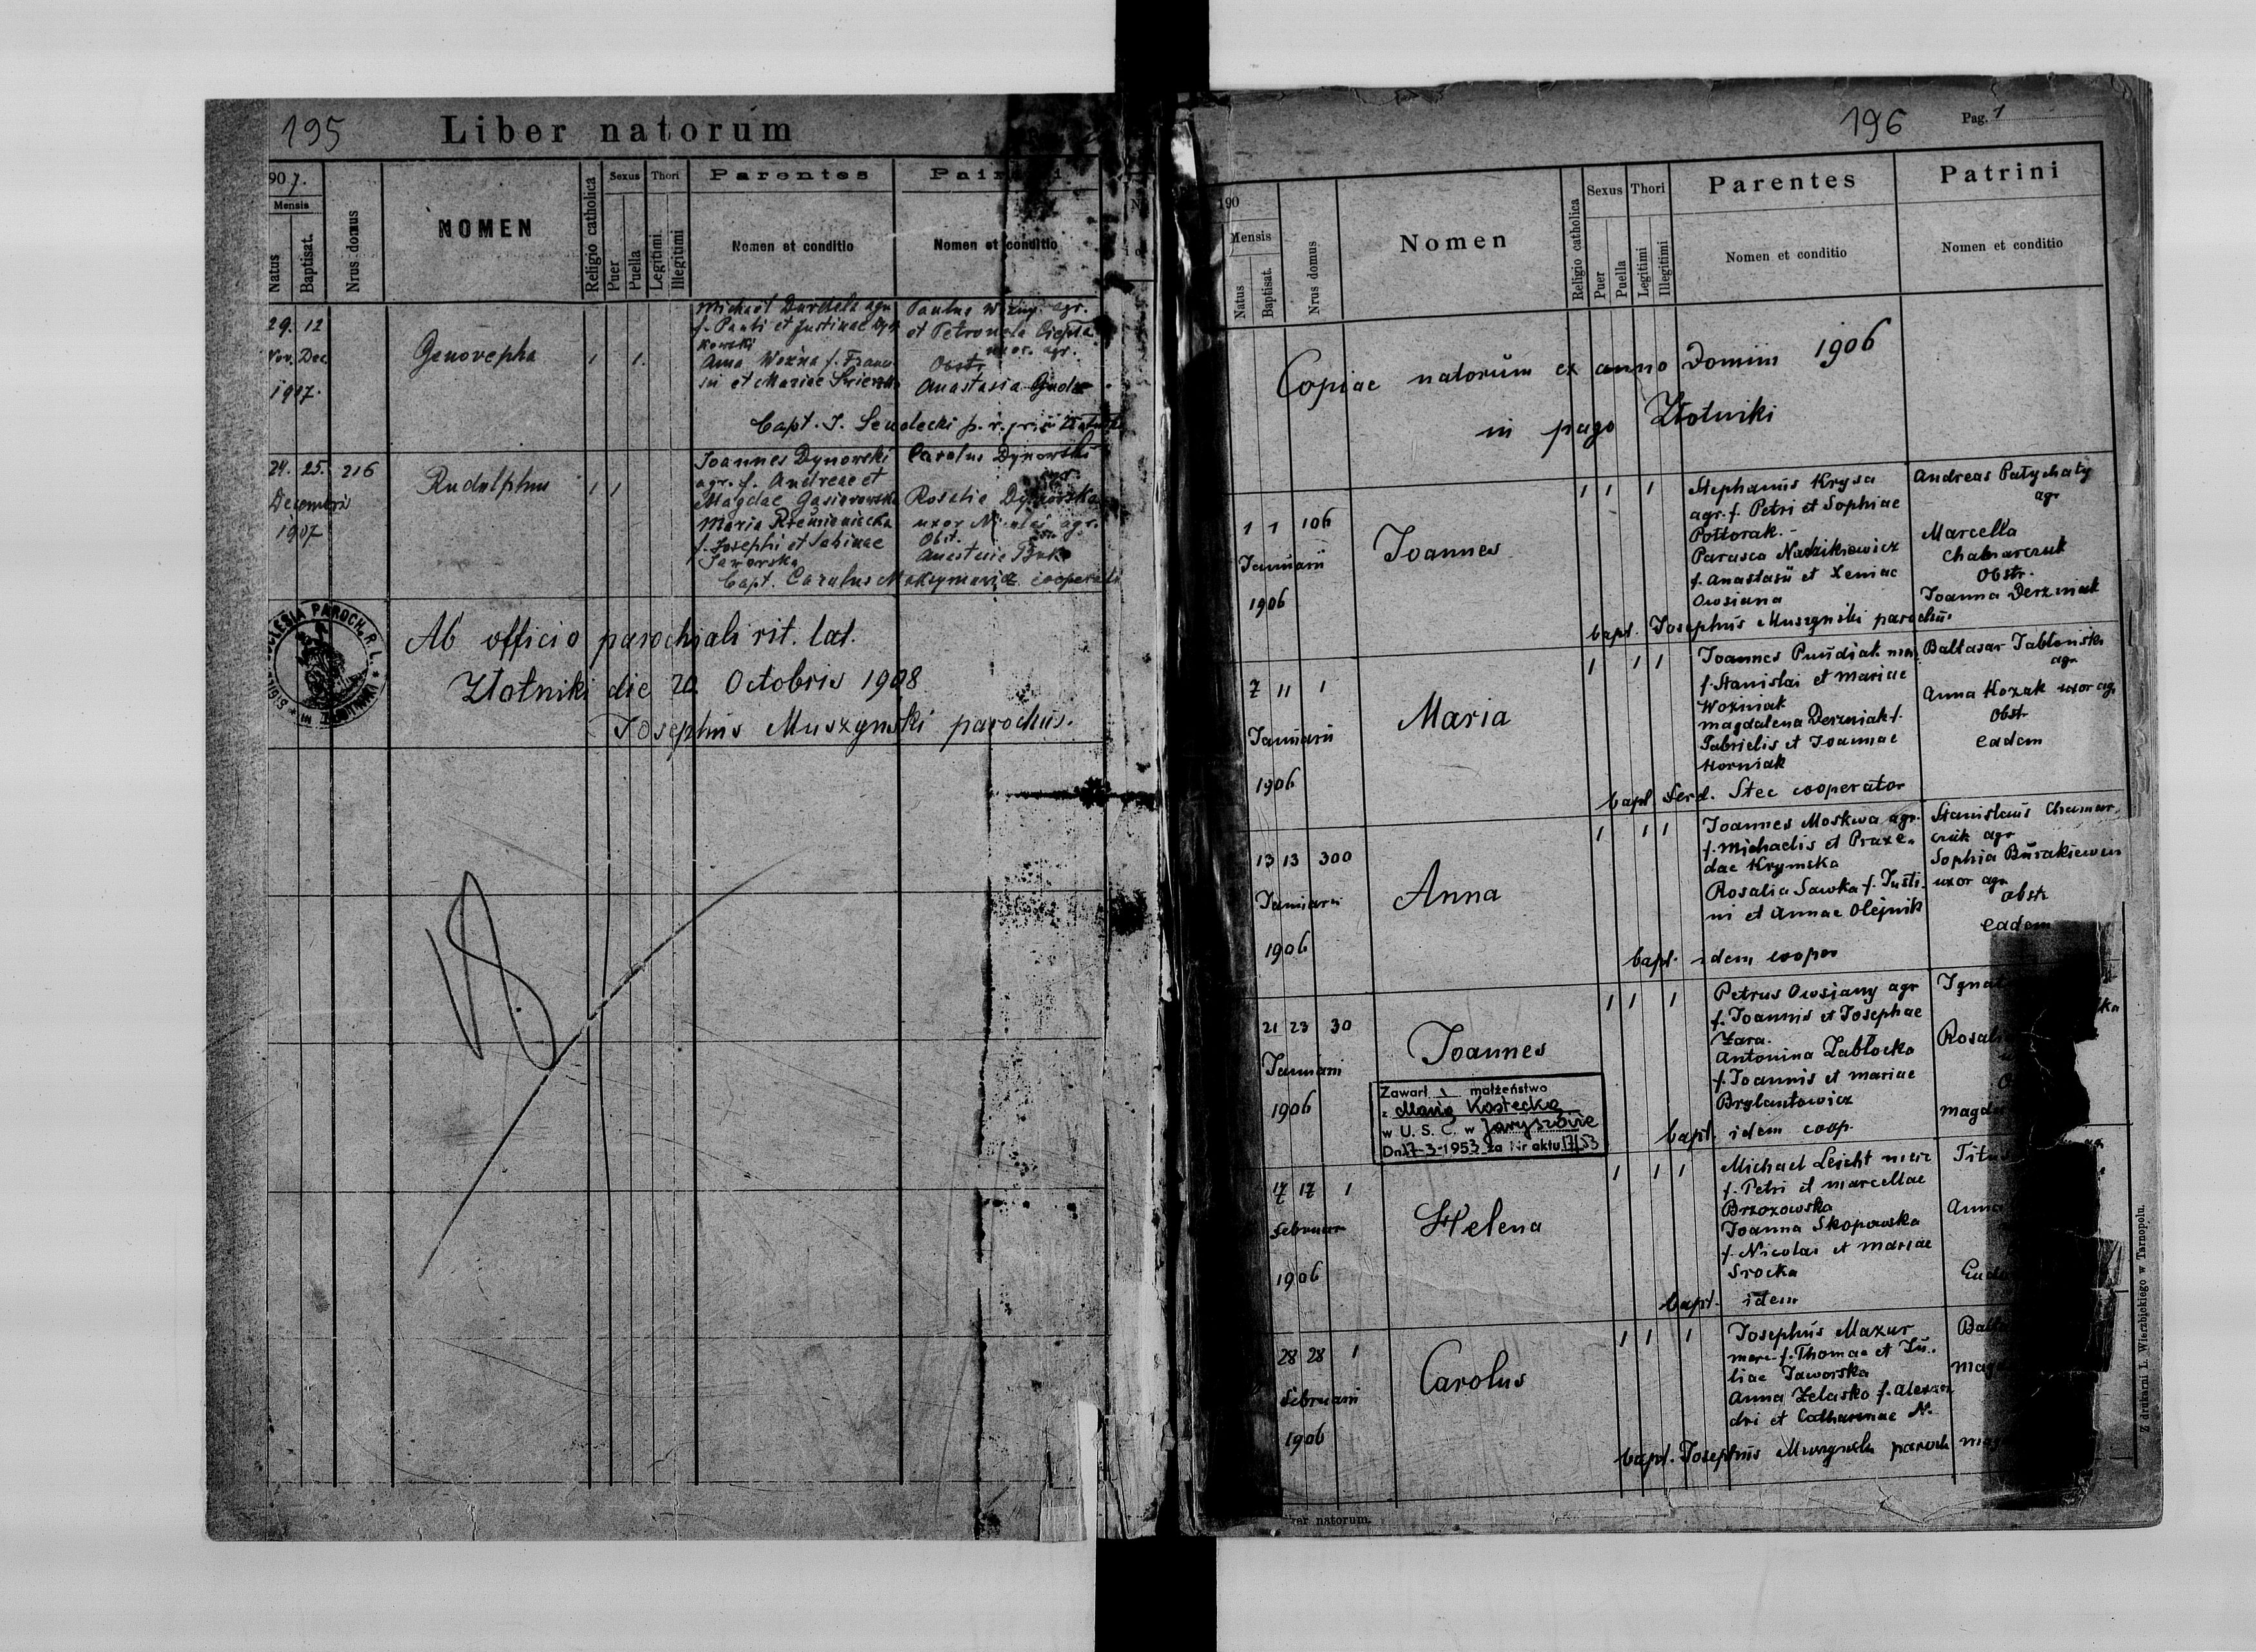 195
Liber natorum
907.
Mensis
Natus
Baptisat.
Nrus domus
NOMEN
Religio catholica
Sexus
Puer
Puella
Thori
Legitimi
Illegitimi
Parentes
Nomen et conditio
Nomen et conditio
29. 12
Nov. Dec
1907.
Genovepha
1 1.
Michael
f. Pauli et Justinae
Anna Woźna f. Franci
sci et Mariae
Paulus agr.
et Petronela
uxor. agr.
Obstr
Anastasia
bapt. J. Sendecki
24. 25. 216
Decembris
1907
Rudolphus
1 1
Joannes Dynowski
agr. f. Andreae et
Magdae Gąsiorowska
Maria
f. Josephi et Sabinae
Jaworska
Carolus Dynowski
agr.
Rosalia Dynowska
uxor Nicolai agr.
Obst.
Anastasia
bapt. Carolus Maksymowicz cooperator
ECCLESIA PAROCH. R. L.
Ab officio parochiali rit. lat.
Złotniki die 20 Octobris 1908
Josephus Muszynski parochus.
196
Pag. 1
190
Mensis
Natus
Baptisat.
Nrus domus
Nomen
Religio catholica
Sexus
Puer
Puella
Thori
Legitimi
Illegitimi
Parentes
Nomen et conditio
Patrini
Nomen et conditio
Copiae natorum ex anno Domini 1906
in pago Złotniki
1 1 106
Januarii
1906
Joannes
1 1 1
Stephanus Krysa
agr. f. Petri et Sophiae
Połtorak.
Parasca Nadzikiewicz
f. Anastasii et Xeniae
Owsiana
Andreas Patychaty
agr
Marcella
Chamarczuk
Obstr.
Joanna Derzniak
bapt. Josephus Muszynski parochus.
7 11 1
Januarii
1906
Maria
1 1 1
Joannes Pundiak
f. Stanislai et Mariae
Woźniak
Magdalena Derzniak f.
Gabrielis et Joannae
Horniak
Baltasar Jabłonski
agr
Anna Kozak uxor agr
Obstr
eadem
bapt. Ferd. Stec cooperator
13 13 300
Januarii
1906
Anna
1 1 1
Joannes Moskwa agr.
f. Michaelis et Praxe-
dae Krymska
Rosalia Sawka f. Justi-
ni et Annae Olejnik
Stanislaus Chamar-
czuk agr
Sophia Burakiewicz
uxor agr
obstr
eadem
bapt. idem cooper
21 23 30
Januarii
1906
Joannes
1 1 1
Petrus Owsiany agr
f. Joannis et Josephae
Żara.
Antonina Zabłocka
f. Joannis et Mariae
Brylantowicz
bapt. idem coop.
Zawarł małżeństwo
z Marią Kostecką
w U. S. C. w Jaryszowie
Dn. 17-3-1953 za Nr aktu 17/53
17 17 1
Februarii
1906
Helena
1 1 1
Michael Leicht merc
f. Petri et Marcellae
Brzozowska
Joanna Skopowska
f. Nicolai et Mariae
Srocka
Anna
bapt. idem
28 28 1
Februarii
1906
Carolus
1 1 1
Josephus Mazur
merc f. Thomae et Ju-
liae Jaworska
Anna Żelasko f. Alexan
dri et Catharinae N.
bapt. Josephus Muszynski paroch
Liber natorum.
Z drukarni L. Wierzbickiego w Tarnopolu.